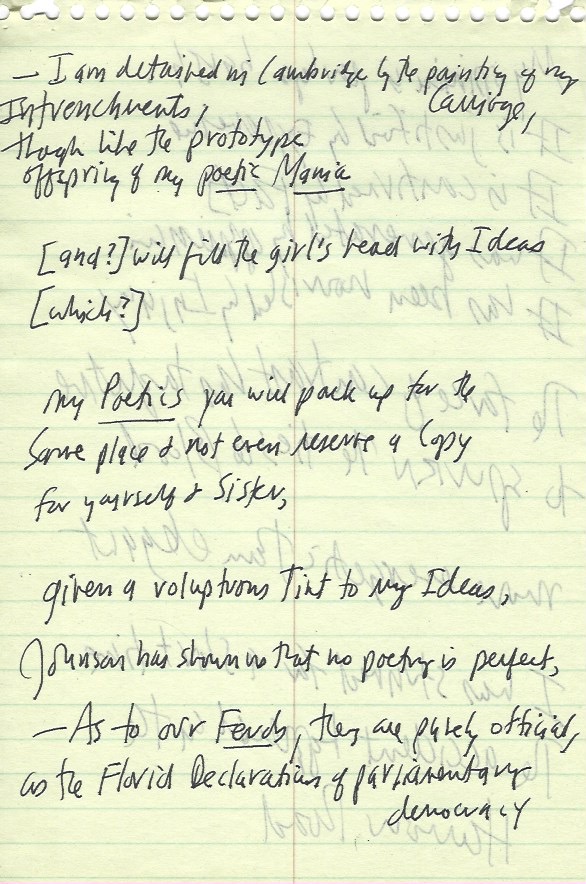 — I am detained in Cambridge by the painting of my
Carriage,
Intrenchments,
though like the prototype
offspring of my poetic Mania
[and?] will fill the girl's head with Ideas
[which?]
my Poetics you will pack up for the
same place & not even reserve a Copy
for yourself & Sister,
given a voluptuous Tint to my Ideas,
Johnson has shown us that no poetry is perfect,
— As to our Feuds, they are purely official,
as the Florid Declarations of parliamentary
democracy